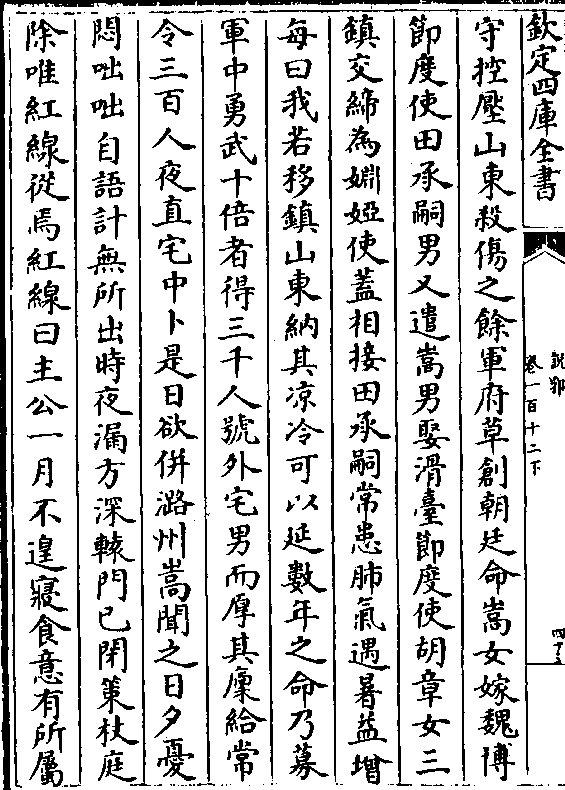 欽定四庫全書
說郛
卷一百十二下
守控壓山東殺傷之餘軍府草創朝廷命嵩女嫁魏博
節度使田承嗣男又遣嵩男娶滑臺節度使胡章女三
鎮交締為婣婭使蓋相接田承嗣常患肺氣遇暑益增
每曰我若移鎮山東納其凉冷可以延數年之命乃募
軍中勇武十倍者得三千人號外宅男而厚其廩給常
令三百人夜直宅中卜是日欲併潞州嵩聞之日夕憂
悶咄咄自語計無所出時夜漏方深轅門已閉策杖庭
除唯紅線從焉紅線曰主公一月不遑寢食意有所屬